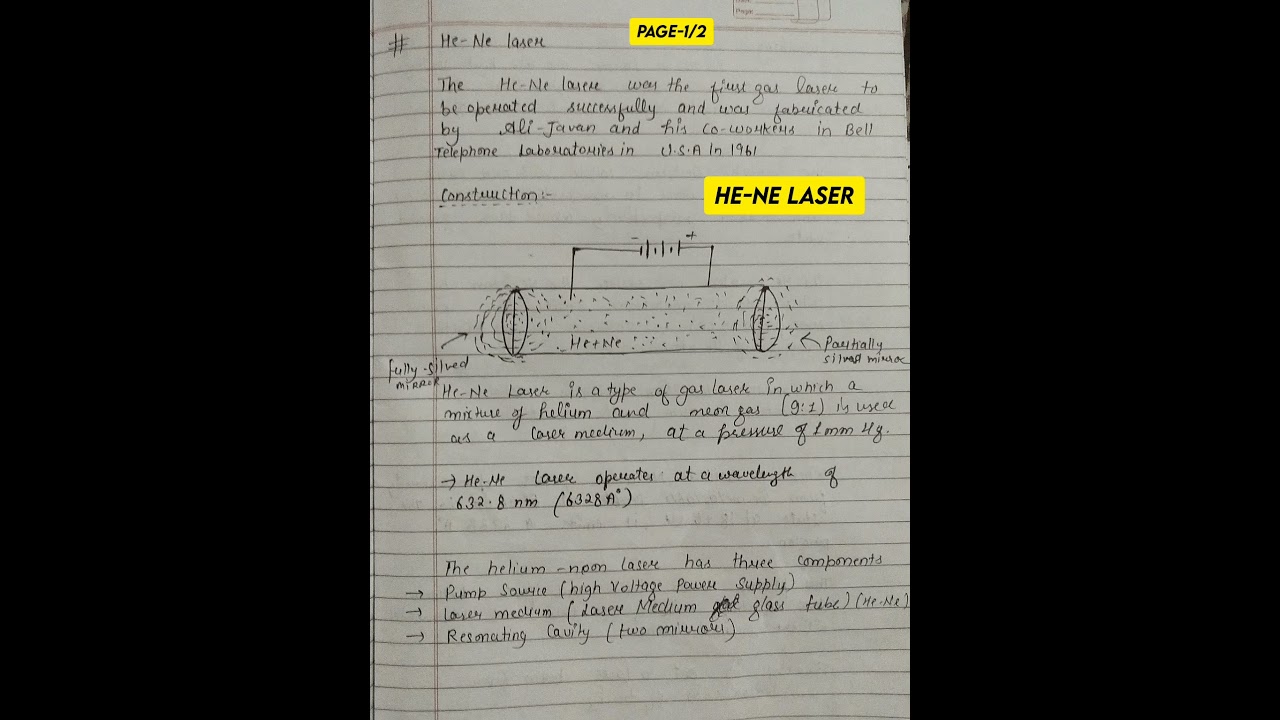 PAGE-1/2
# He-Ne laser
The He-Ne laser was the first gas laser to
be operated successfully and was fabricated
by Ali-Javan and his co-workers in Bell
Telephone Laboratories in U.S.A In 1961
Construction:-
HE-NE LASER
- +
He+Ne
fully-silved
mirror
Partially
silved mirror
He-Ne Laser is a type of gas laser in which a
mixture of helium and neon gas (9:1) is used
as a laser medium, at a pressure of 1mm Hg.
→ He-Ne laser operates at a wavelength of
632.8 nm (6328A°)
The helium-neon laser has three components
→ Pump Source (high Voltage Power Supply)
→ Laser medium (Laser Medium glass tube) (He-Ne)
→ Resonating Cavity (two mirrors)